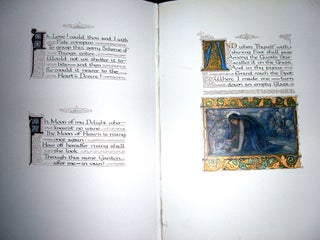 Ah, Love! could thou and I with
Fate conspire
To grasp this sorry Scheme of
Things entire
Would not we shatter it to
bits—and then
Re mould it nearer to the
Heart's Desire!
Ah, Moon of my Delight who
know'st no wane
The Moon of Heav'n is rising
once again
How oft hereafter rising shall
she look
Through this same Garden
after me—in vain!
AND when Thyself with
shining Foot shall pass
Among the Guests Star
scatter'd on the Grass,
And in thy joyous
Errand reach the Spot
Where I made one turn
down an empty Glass